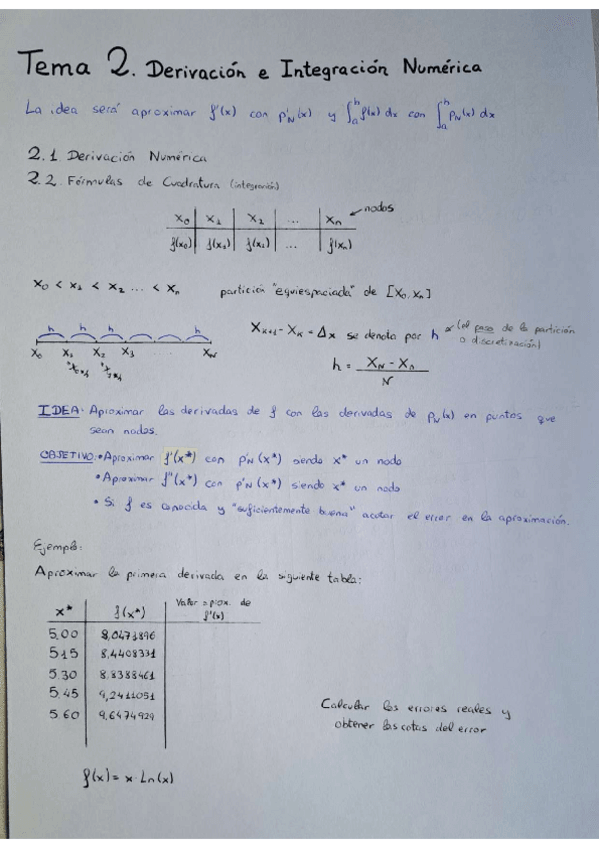 Tema 2. Derivación e Integración Numérica
La idea será aproximar f'(x) con p'N(x) y ∫ₐᵇ f(x) dx con ∫ₐᵇ pN(x) dx
2.1. Derivación Numérica
2.2. Fórmulas de Cuadratura (integración)
x₀ x₁ x₂ ... xn nodos
f(x₀) f(x₁) f(x₂) ... f(xn)
x₀ < x₁ < x₂ ... < xn partición "equiespaciada" de [x₀, xn]
h h h h
x₀ x₁ x₂ x₃ ... xN
xk+1 - xk = Δx se denota por h (el paso de la partición
o discretización)
h = (xN - x₀) / N
IDEA: Aproximar las derivadas de f con las derivadas de pN(x) en puntos que
sean nodos.
OBJETIVO: • Aproximar f'(x*) con p'N(x*) siendo x* un nodo
• Aproximar f''(x*) con p'N(x*) siendo x* un nodo
• Si f es conocida y "suficientemente buena" acotar el error en la aproximación.
Ejemplo:
Aproximar la primera derivada en la siguiente tabla:
x* f(x*) Valor aprox. de
f'(x)
5.00 8,0471896
5.15 8,4408331
5.30 8,8388461
5.45 9,2411051
5.60 9,6474929
Calcular los errores reales y
obtener las cotas del error
f(x) = x · Ln(x)